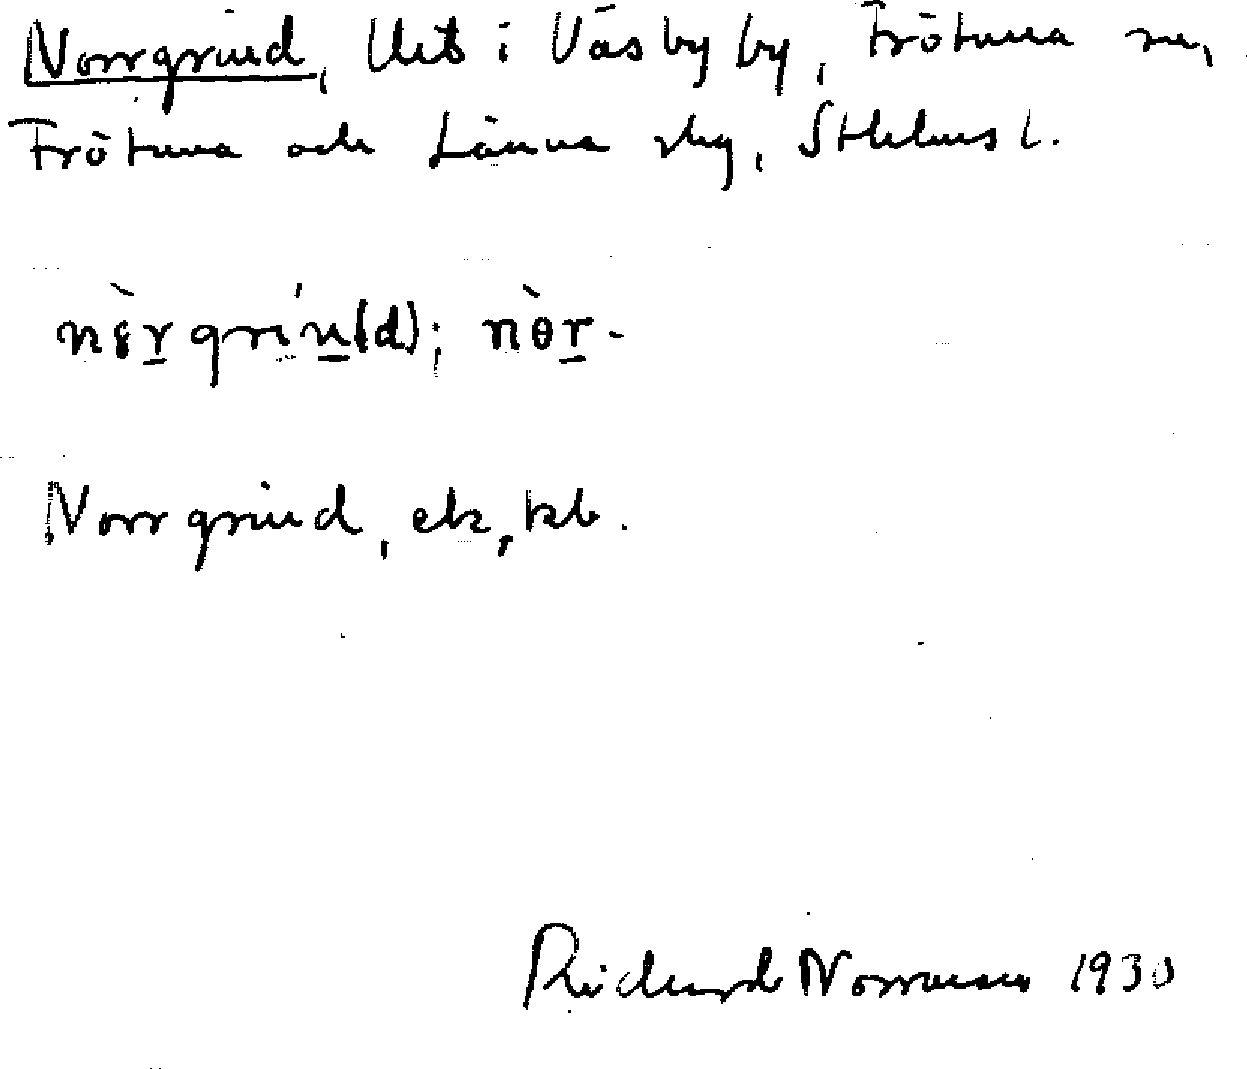 Norrgrind, Uet i Väsby by, Frötuna sn,
Frötuna och Länna skg, Sthlms l.
nè̱r̲grín̲(d); nòr̲-
Norrgrind, ek, kb.
Richard Norrman 1930